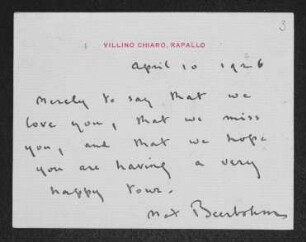 3
VILLINO CHIARO, RAPALLO
April 10 1926
Merely to say that we
love you, that we miss
you, and that we hope
you are having a very
happy tour.
Max Beerbohm